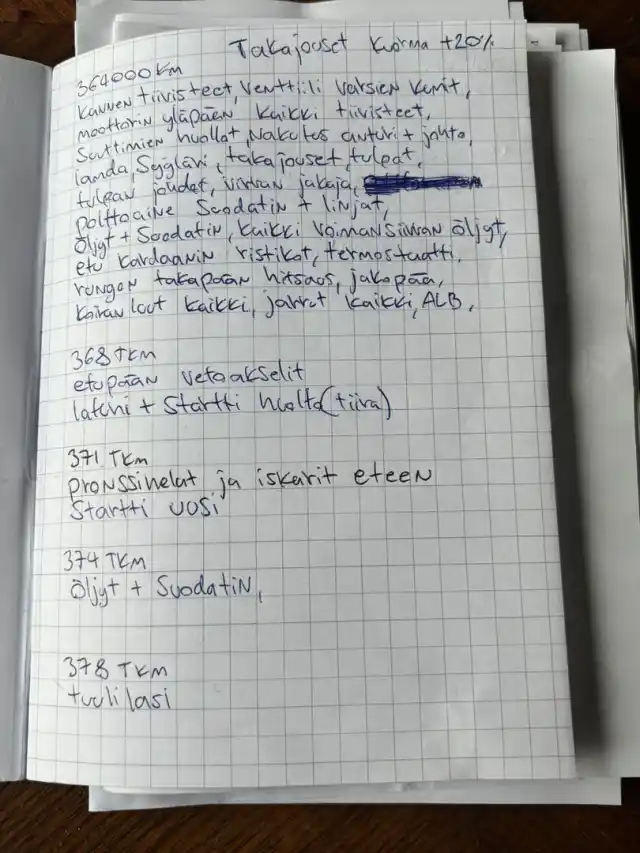 Takajouset kuorma +20%
364000KM
kannen tiivisteet, venttiili varsien kumit,
moottorin yläpään kaikki tiivisteet,
Suttimien huollot, Nakutus anturi + johto,
lamda, Sygläri, takajouset, tulpat,
tulpan joudet, virran jakaja,
polttoaine Suodatin + linjat,
öljyt + Suodatin, kaikki voimansiirran öljyt,
etu kardaanin ristikot, termostaatti,
rungon takapään hitsaus, jakopää,
koiran luut kaikki, jarrut kaikki, ALB,
368 TKM
etupään vetoakselit
laturi + Startti huolto (tiira)
371 TKM
pronssinelat ja iskarit eteen
Startti uusi
374 TKM
öljyt + Suodatin,
378 TKM
tuulilasi